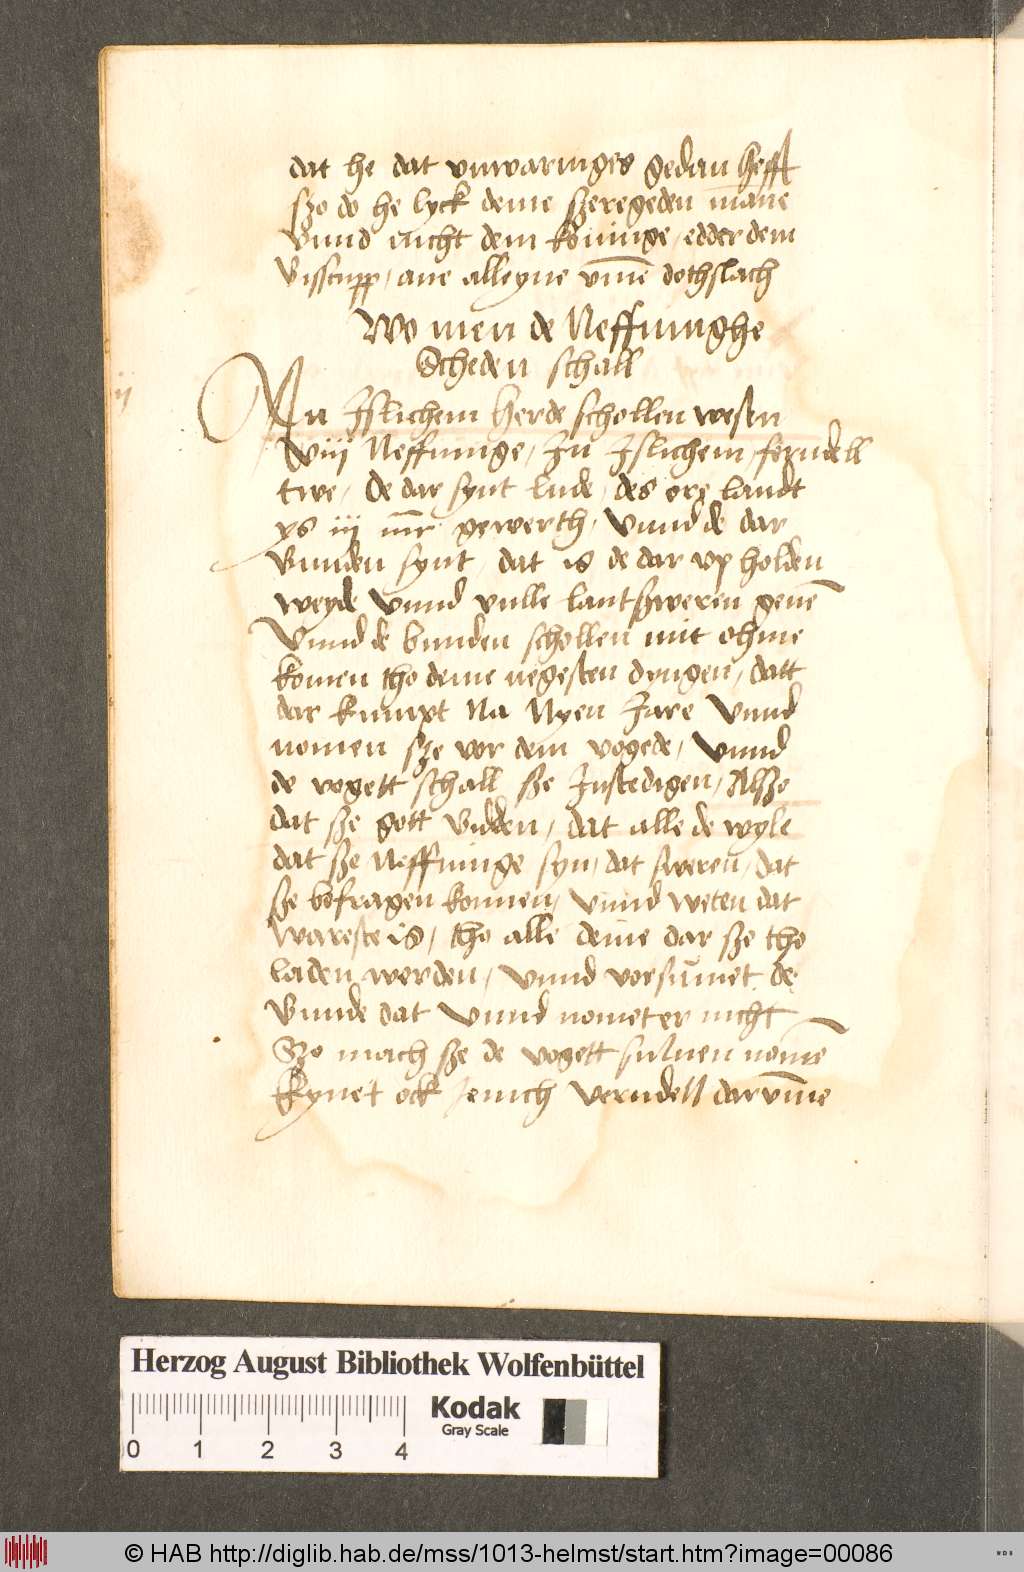 dat he dat vnwaringes gedan hefft
szo do he lyck deme szeregeden māne
Vnnd nicht dem konnige, edder dem
Bisscupp, ane alleyne vm̄e dothslach
Wo men de Neffninghe
Scheden schall
An Islichem Herde schollen wesen
viij Neffninge, In Islichem ferndell
twe, De dar synt lude, des ore landt
ys iij mr gewerth, Vnnd de dar
Bunden synt, dat is de dar vp holden
weyde Vnnd vulle lantszweren geuē
Vnnd de bunden schollen mit ohme
komen tho deme negesten dyngen, datt
dar kumpt Na Nyen Jare Vnnd
nomen sze vor dem vogede, Vnnd
de vogett schall sze Instedigen, Alszo
dat sze gott Bidden, dat alle de wyle
dat sze Neffninge syn, dat sweren, dat
sze befragen konnen, Vnnd weten dat
wareste is, tho alle deme dar sze tho
laden werden, Vnnd vorsumet de
Bunde dat Vnnd nomet er nicht
Szo mach sze de vogett suluen nomē
Kynet ock Jenich verndell darvm̄e
Herzog August Bibliothek Wolfenbüttel
Kodak
Gray Scale
0 1 2 3 4
© HAB http://diglib.hab.de/mss/1013-helmst/start.htm?image=00086